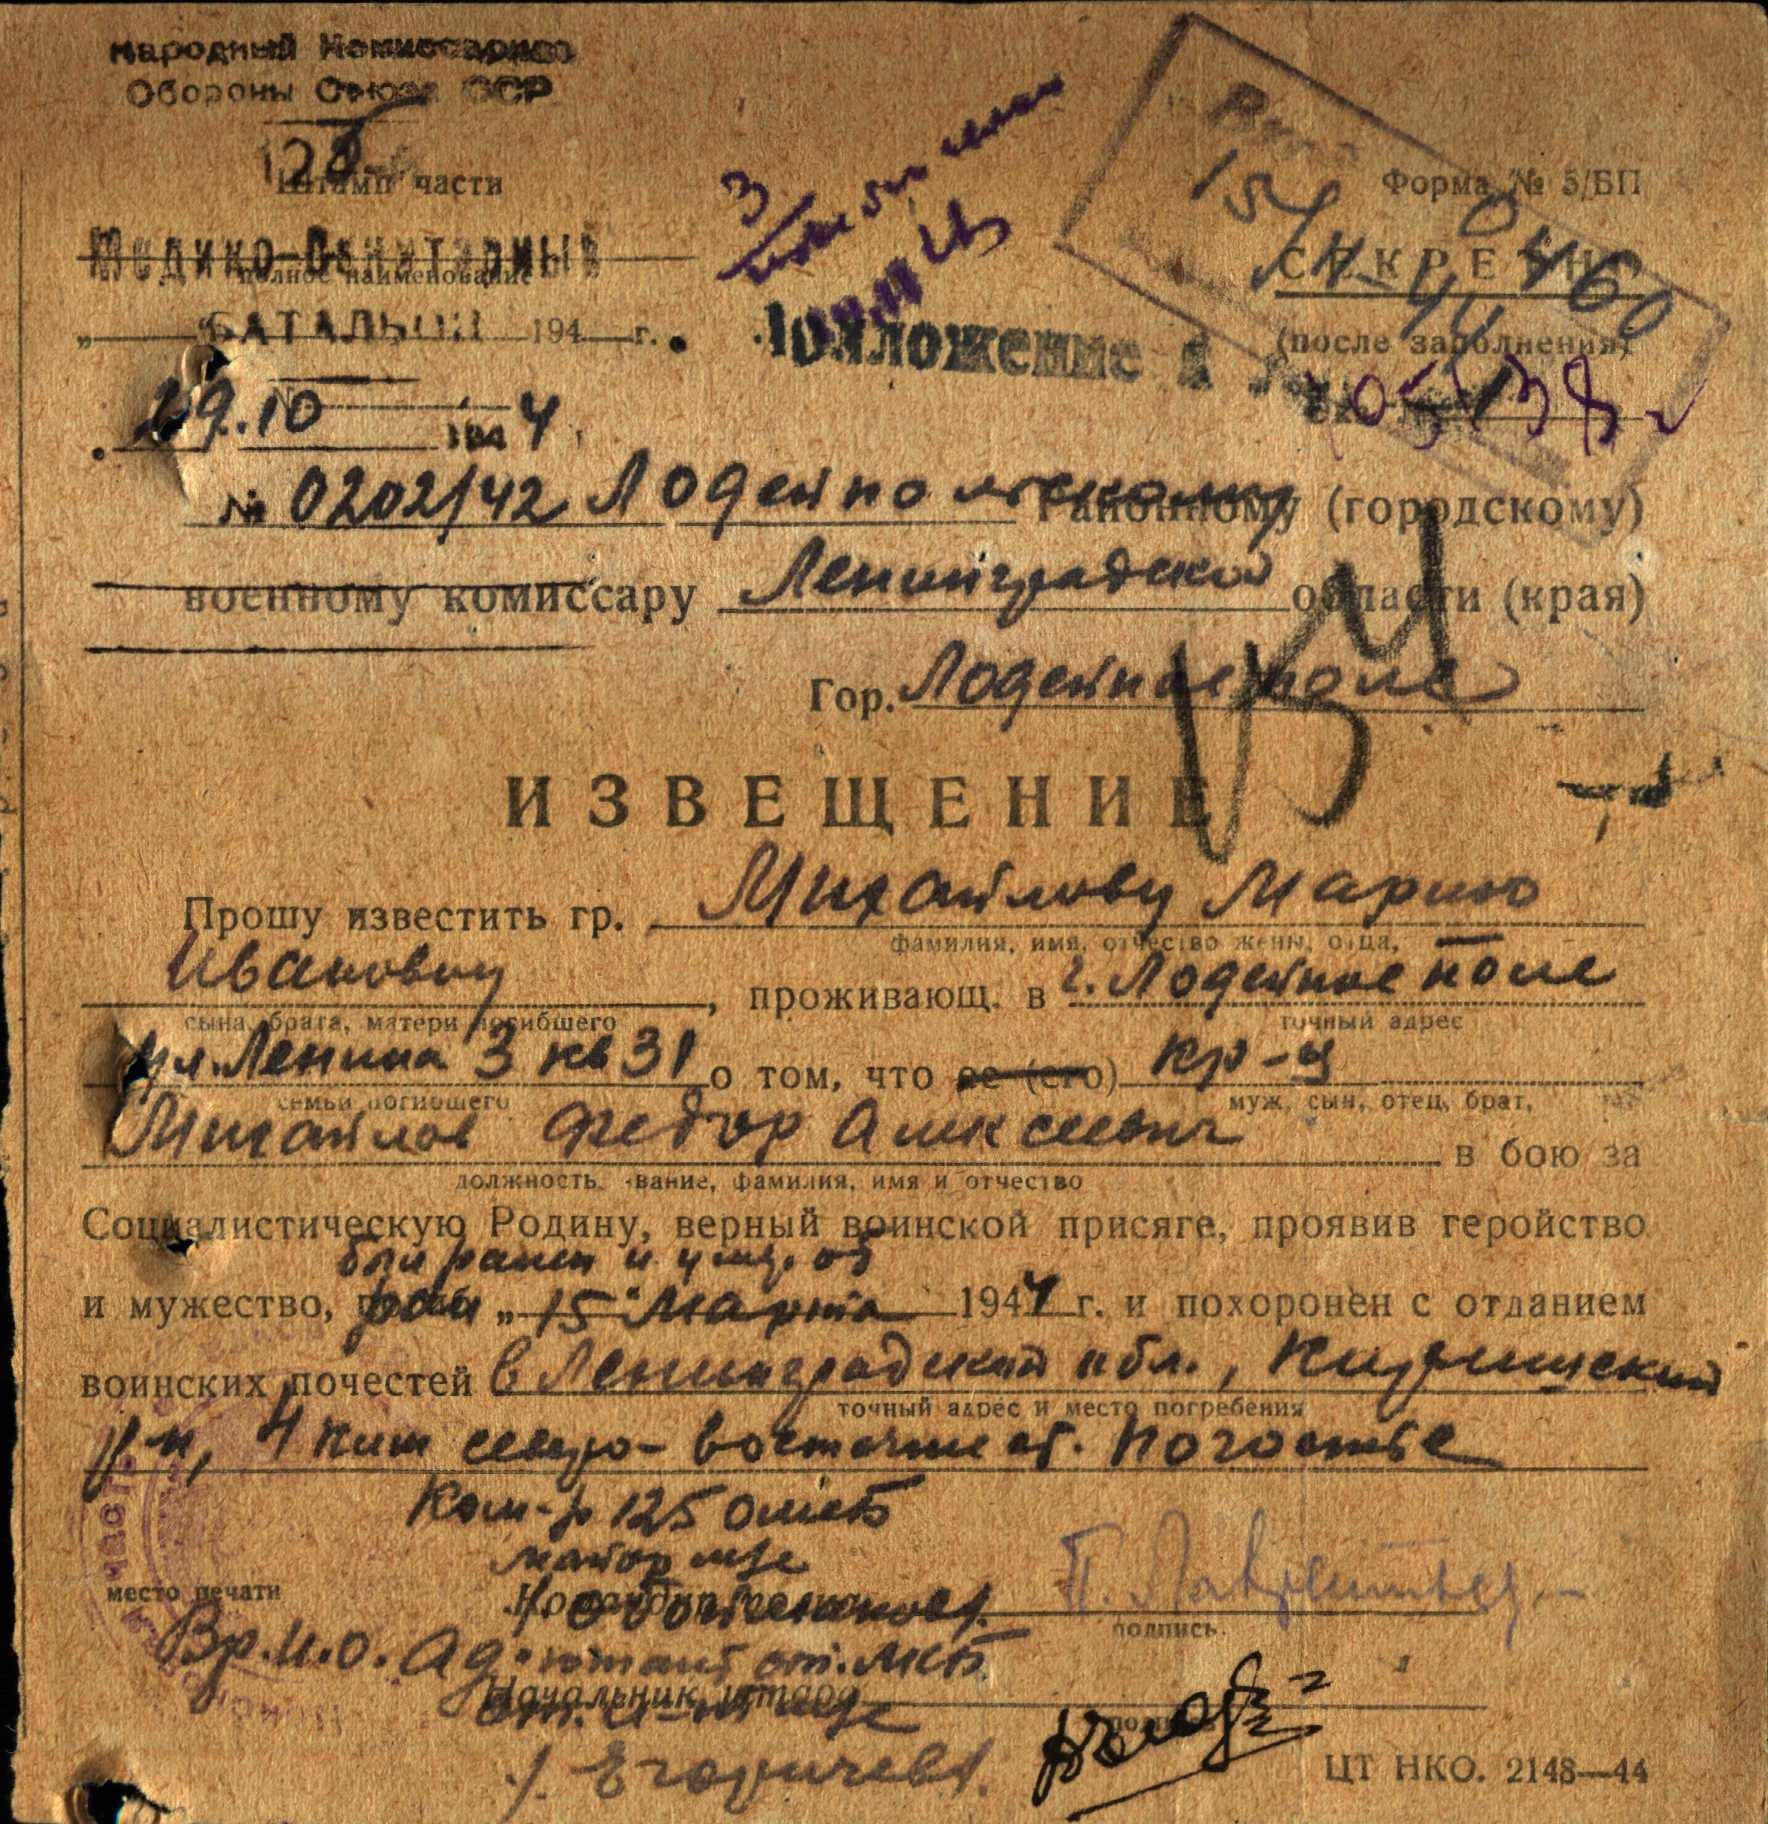 Народный Комиссариат
Обороны Союза ССР
125
Штамп части
Форма № 5/БП
Медико-Санитарный
полное наименование
СЕКРЕТНО
БАТАЛЬОН 194 г.
(после заполнения)
29.10 1944
№ 0202/42 Лодейнопольскому Районному (городскому)
военному комиссару Ленинградской области (края)
Гор. Лодейное поле
ИЗВЕЩЕНИЕ
Прошу известить гр. Михайлову Марию
фамилия, имя, отчество жены, отца,
Ивановну, проживающ. в г. Лодейное поле
сына, брата, матери погибшего точный адрес
ул. Ленина 3 кв 31 о том, что ее (его) кр-ц
семьи погибшего муж, сын, отец, брат,
Михайлов Федор Алексеевич в бою за
должность, звание, фамилия, имя и отчество
Социалистическую Родину, верный воинской присяге, проявив геройство
был ранен и умер от
и мужество, ран „15" Марта 1944 г. и похоронен с отданием
воинских почестей в Ленинградской обл., Киришский
точный адрес и место погребения
р-н, 4 км северо-восточнее ст. Погостье
Ком-р 125 омсб
майор м/с
место печати
Командир
подпись
Вр.и.о. Адъютант от. МСБ
Начальник штаба
подпись
/Егоричев/.
ЦТ НКО. 2148—44